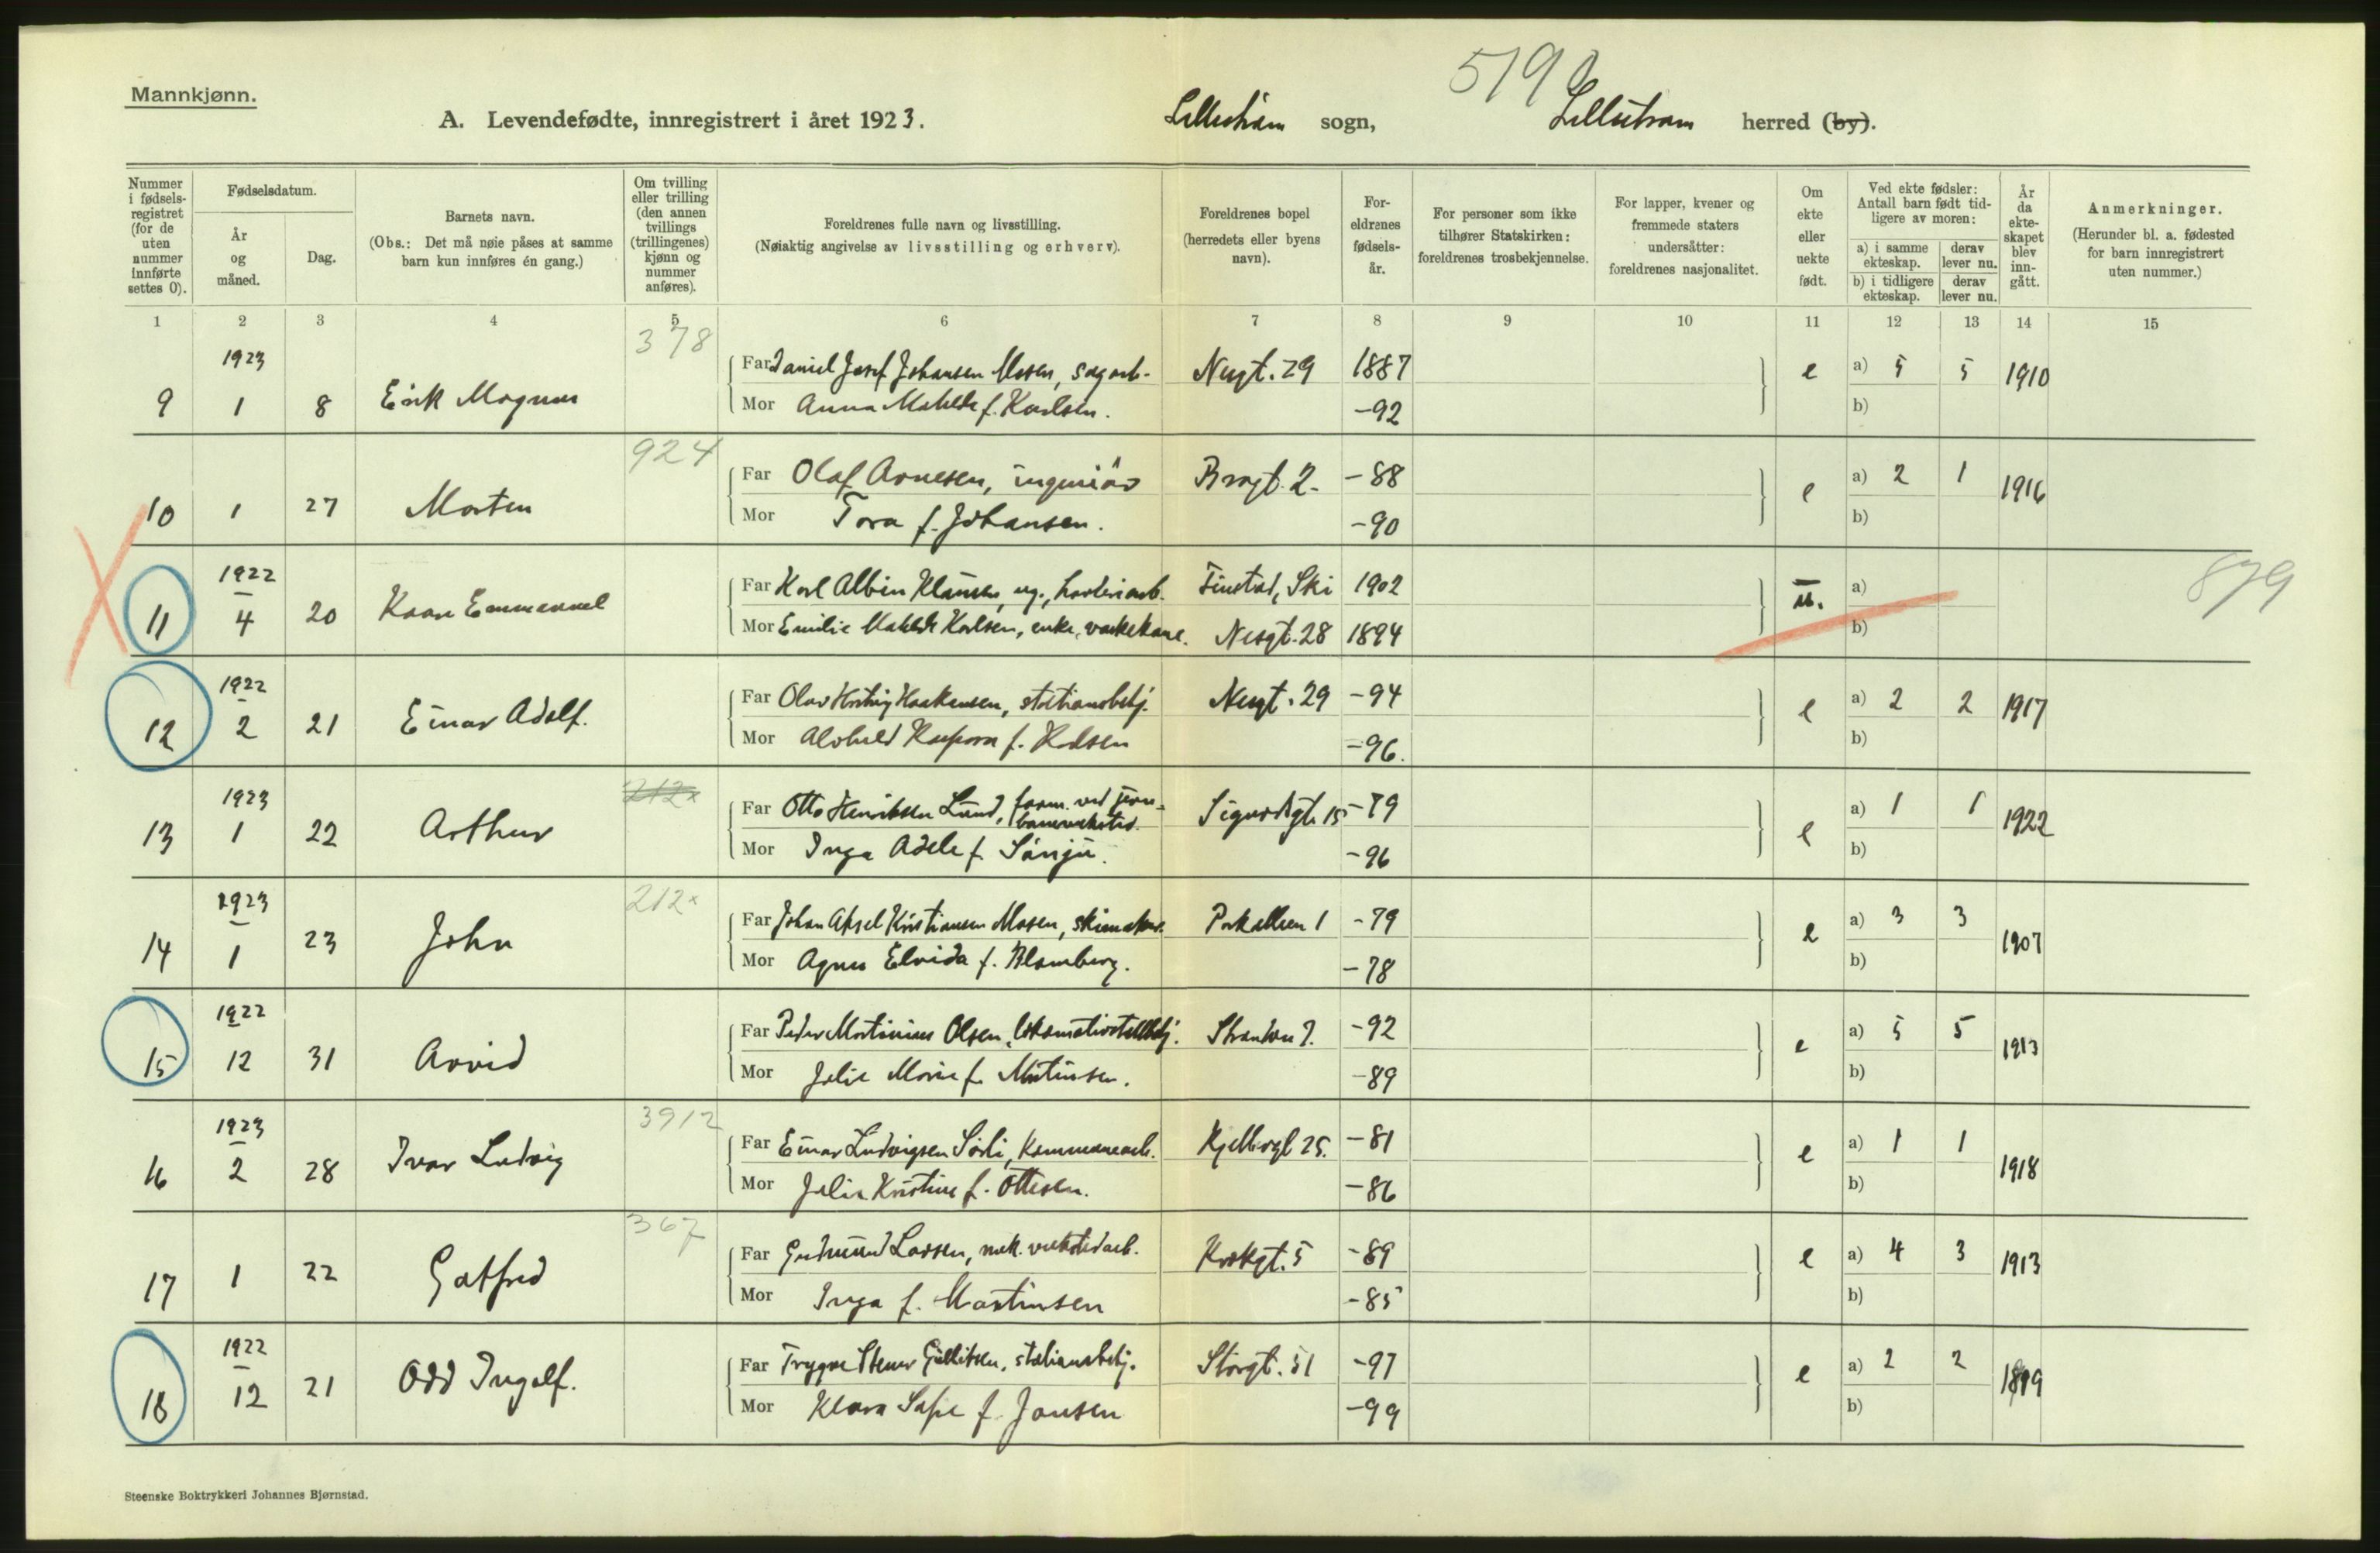 5190
Mannkjønn.
A. Levendefødte, innregistrert i året 1923. Lillestrøm sogn, Lillestrøm herred (by).
Nummer i fødsels-registret (for de uten nummer innførte settes 0).
Fødselsdatum.
År og måned.
Dag.
Barnets navn.
(Obs.: Det må nøie påses at samme barn kun innføres én gang.)
Om tvilling eller trilling (den annen tvillings (trillingenes) kjønn og nummer anføres).
Foreldrenes fulle navn og livsstilling.
(Nøiaktig angivelse av livsstilling og erhverv).
Foreldrenes bopel (herredets eller byens navn).
For-eldrenes fødsels-år.
For personer som ikke tilhører Statskirken: foreldrenes trosbekjennelse.
For lapper, kvener og fremmede staters undersåtter: foreldrenes nasjonalitet.
Om ekte eller uekte født.
Ved ekte fødsler: Antall barn født tid-ligere av moren:
a) i samme ekteskap. derav lever nu.
b) i tidligere ekteskap. derav lever nu.
År da ekte-skapet blev inn-gått.
Anmerkninger.
(Herunder bl. a. fødested for barn innregistrert uten nummer.)
1 2 3 4 5 6 7 8 9 10 11 12 13 14 15
378
1923
9 1 8 Erik Magnus
Far Daniel Josef Johansen Mosen, sagarb. Nesgt. 29 1887 e a) 5 5 1910
Mor Anna Mathilde f. Karlsen. -92 b)
924
10 1 27 Morten
Far Olaf Arnesen, ingeniør Bragt. 2. -88 e a) 2 1 1916
Mor Tora f. Johansen. -90 b)
1922
11 4 20 Kaare Emmanuel
Far Karl Albin Klausen, ug., Finstad, Ski 1902 u. a) 879
Mor Emilie Mathilde Karlsen, enke, vaskekone. Nesgt. 28 1894 b)
1922
12 2 21 Einar Adolf.
Far Olav Hartvig Haakensen, stationsbetj. Nesgt. 29 -94 e a) 2 2 1917
Mor Alvhild f. -96. b)
212x
1923
13 1 22 Arthur
Far Otto Henriksen Lund, form. ved jern-
baneverksted. Sigurdsgt. 15 -79 e a) 1 1 1922
Mor Inga Adele f. -96 b)
212x
1923
14 1 23 John
Far Johan Aksel Kristiansen Mosen, skomaker. Parkalleen 1 -79 e a) 3 3 1907
Mor Agnes Elvida f. Blomberg. -78 b)
1922
15 12 31 Arvid
Far Peder Martinius Olsen, -92 e a) 5 5 1913
Mor Julie Marie f. Martinsen. -89 b)
3912
1923
16 2 28 Ivar Ludvig
Far Einar Ludvigsen Sørli, kommunearb. 25. -81 e a) 1 1 1918
Mor Julie Kristine f. Ottesen. -86 b)
367
17 1 22 Gotfred
Far Gudmund Larsen, mek. verkstedarb. 5 -89 e a) 4 3 1913
Mor Inga f. Martinsen -85 b)
1922
18 12 21 Odd Ingolf.
Far Trygve Stener Gulliksen, stationsbetj. Storgt. 51 -97 e a) 2 2 1919
Mor Klara Sofie f. Jonsen -99 b)
Steenske Boktrykkeri Johannes Bjørnstad.